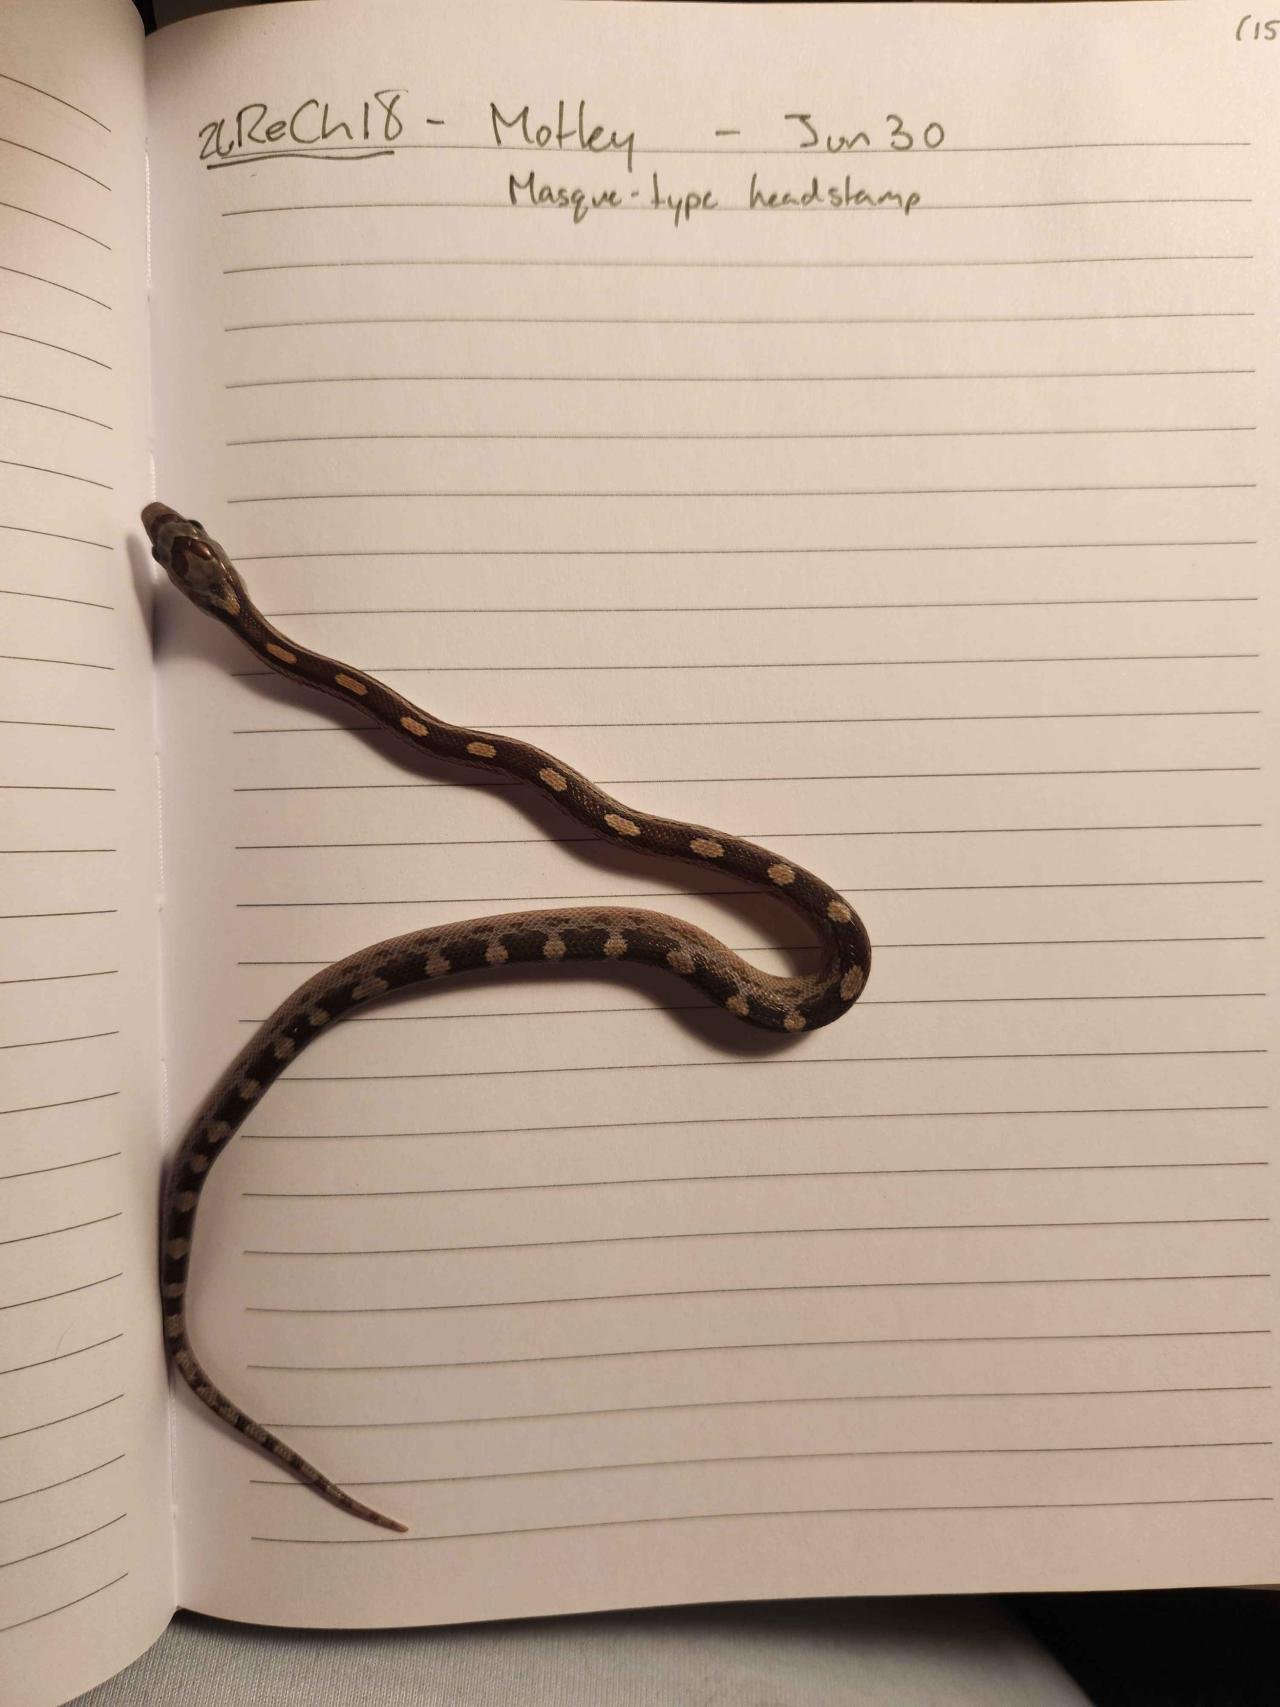 (15
26ReCh18 - Motley - Jun 30
Masque-type headstamp